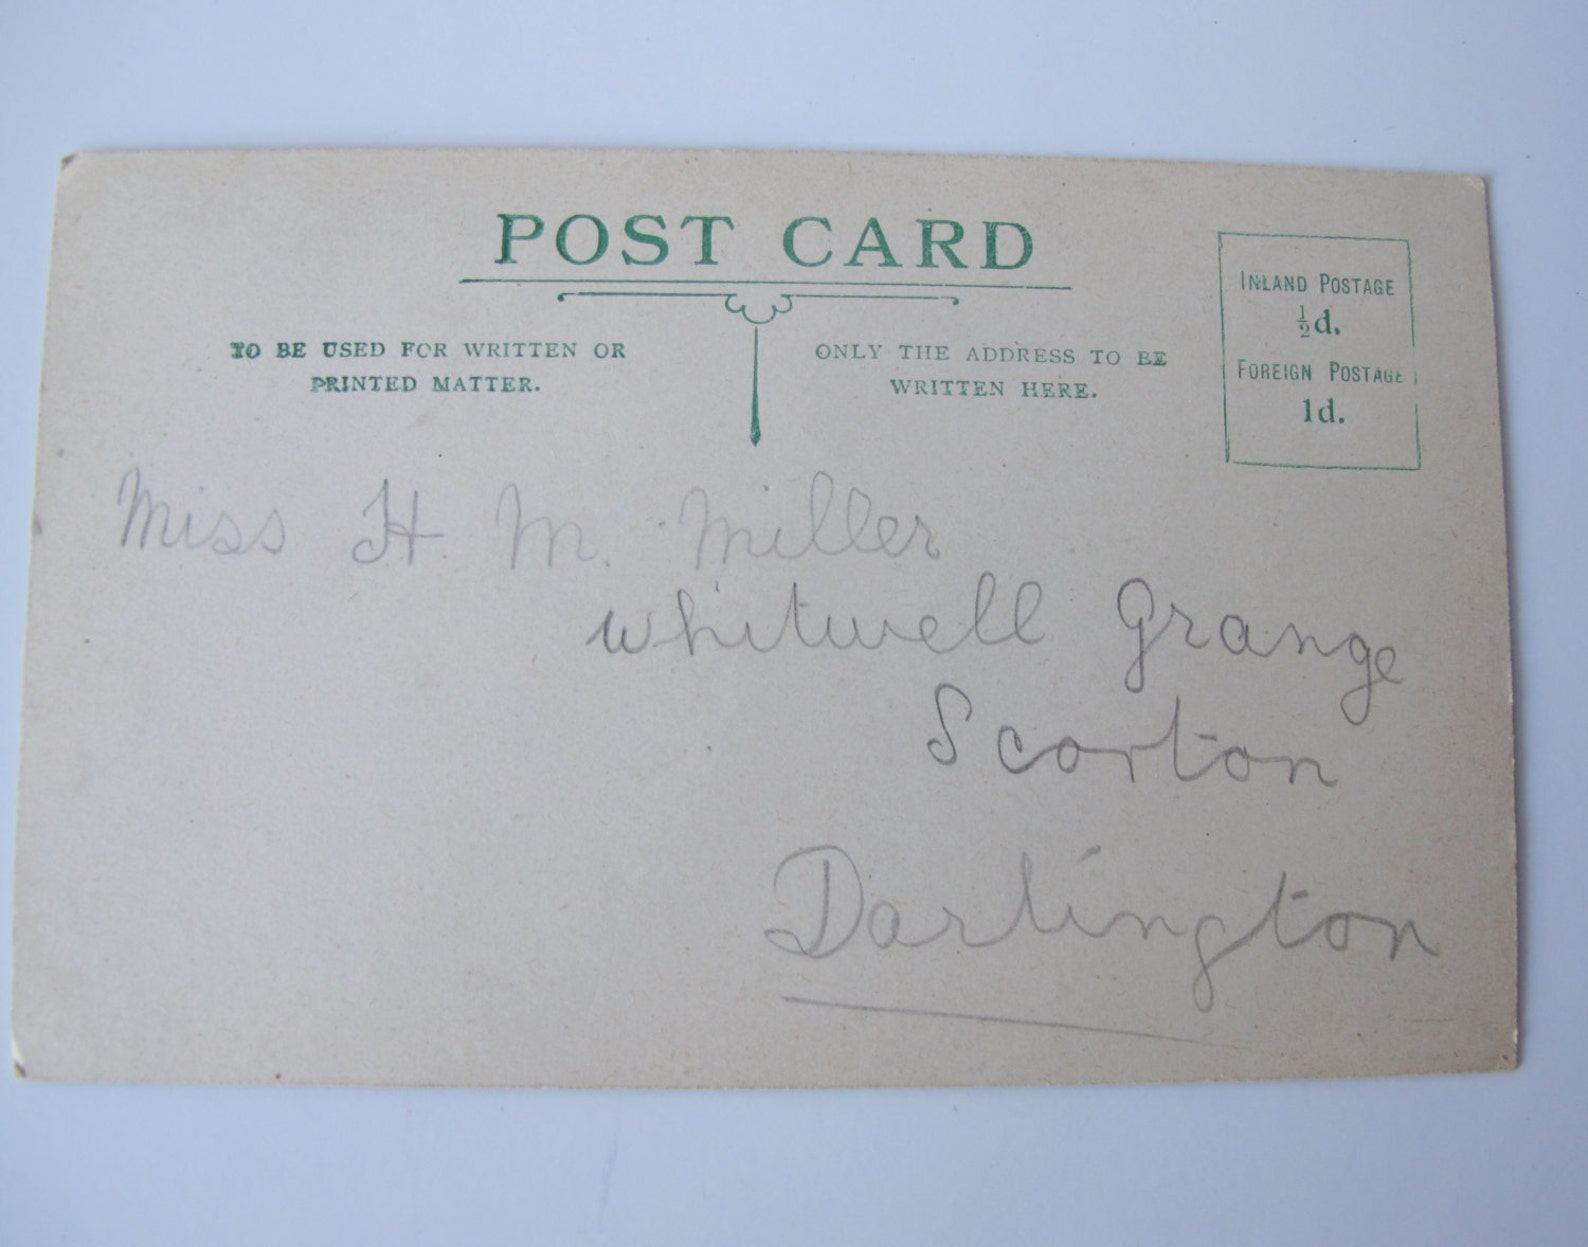 POST CARD
TO BE USED FOR WRITTEN OR
PRINTED MATTER.
ONLY THE ADDRESS TO BE
WRITTEN HERE.
INLAND POSTAGE
½d.
FOREIGN POSTAGE
1d.
Miss H. M. Miller
Whitwell Grange
Scorton
Darlington